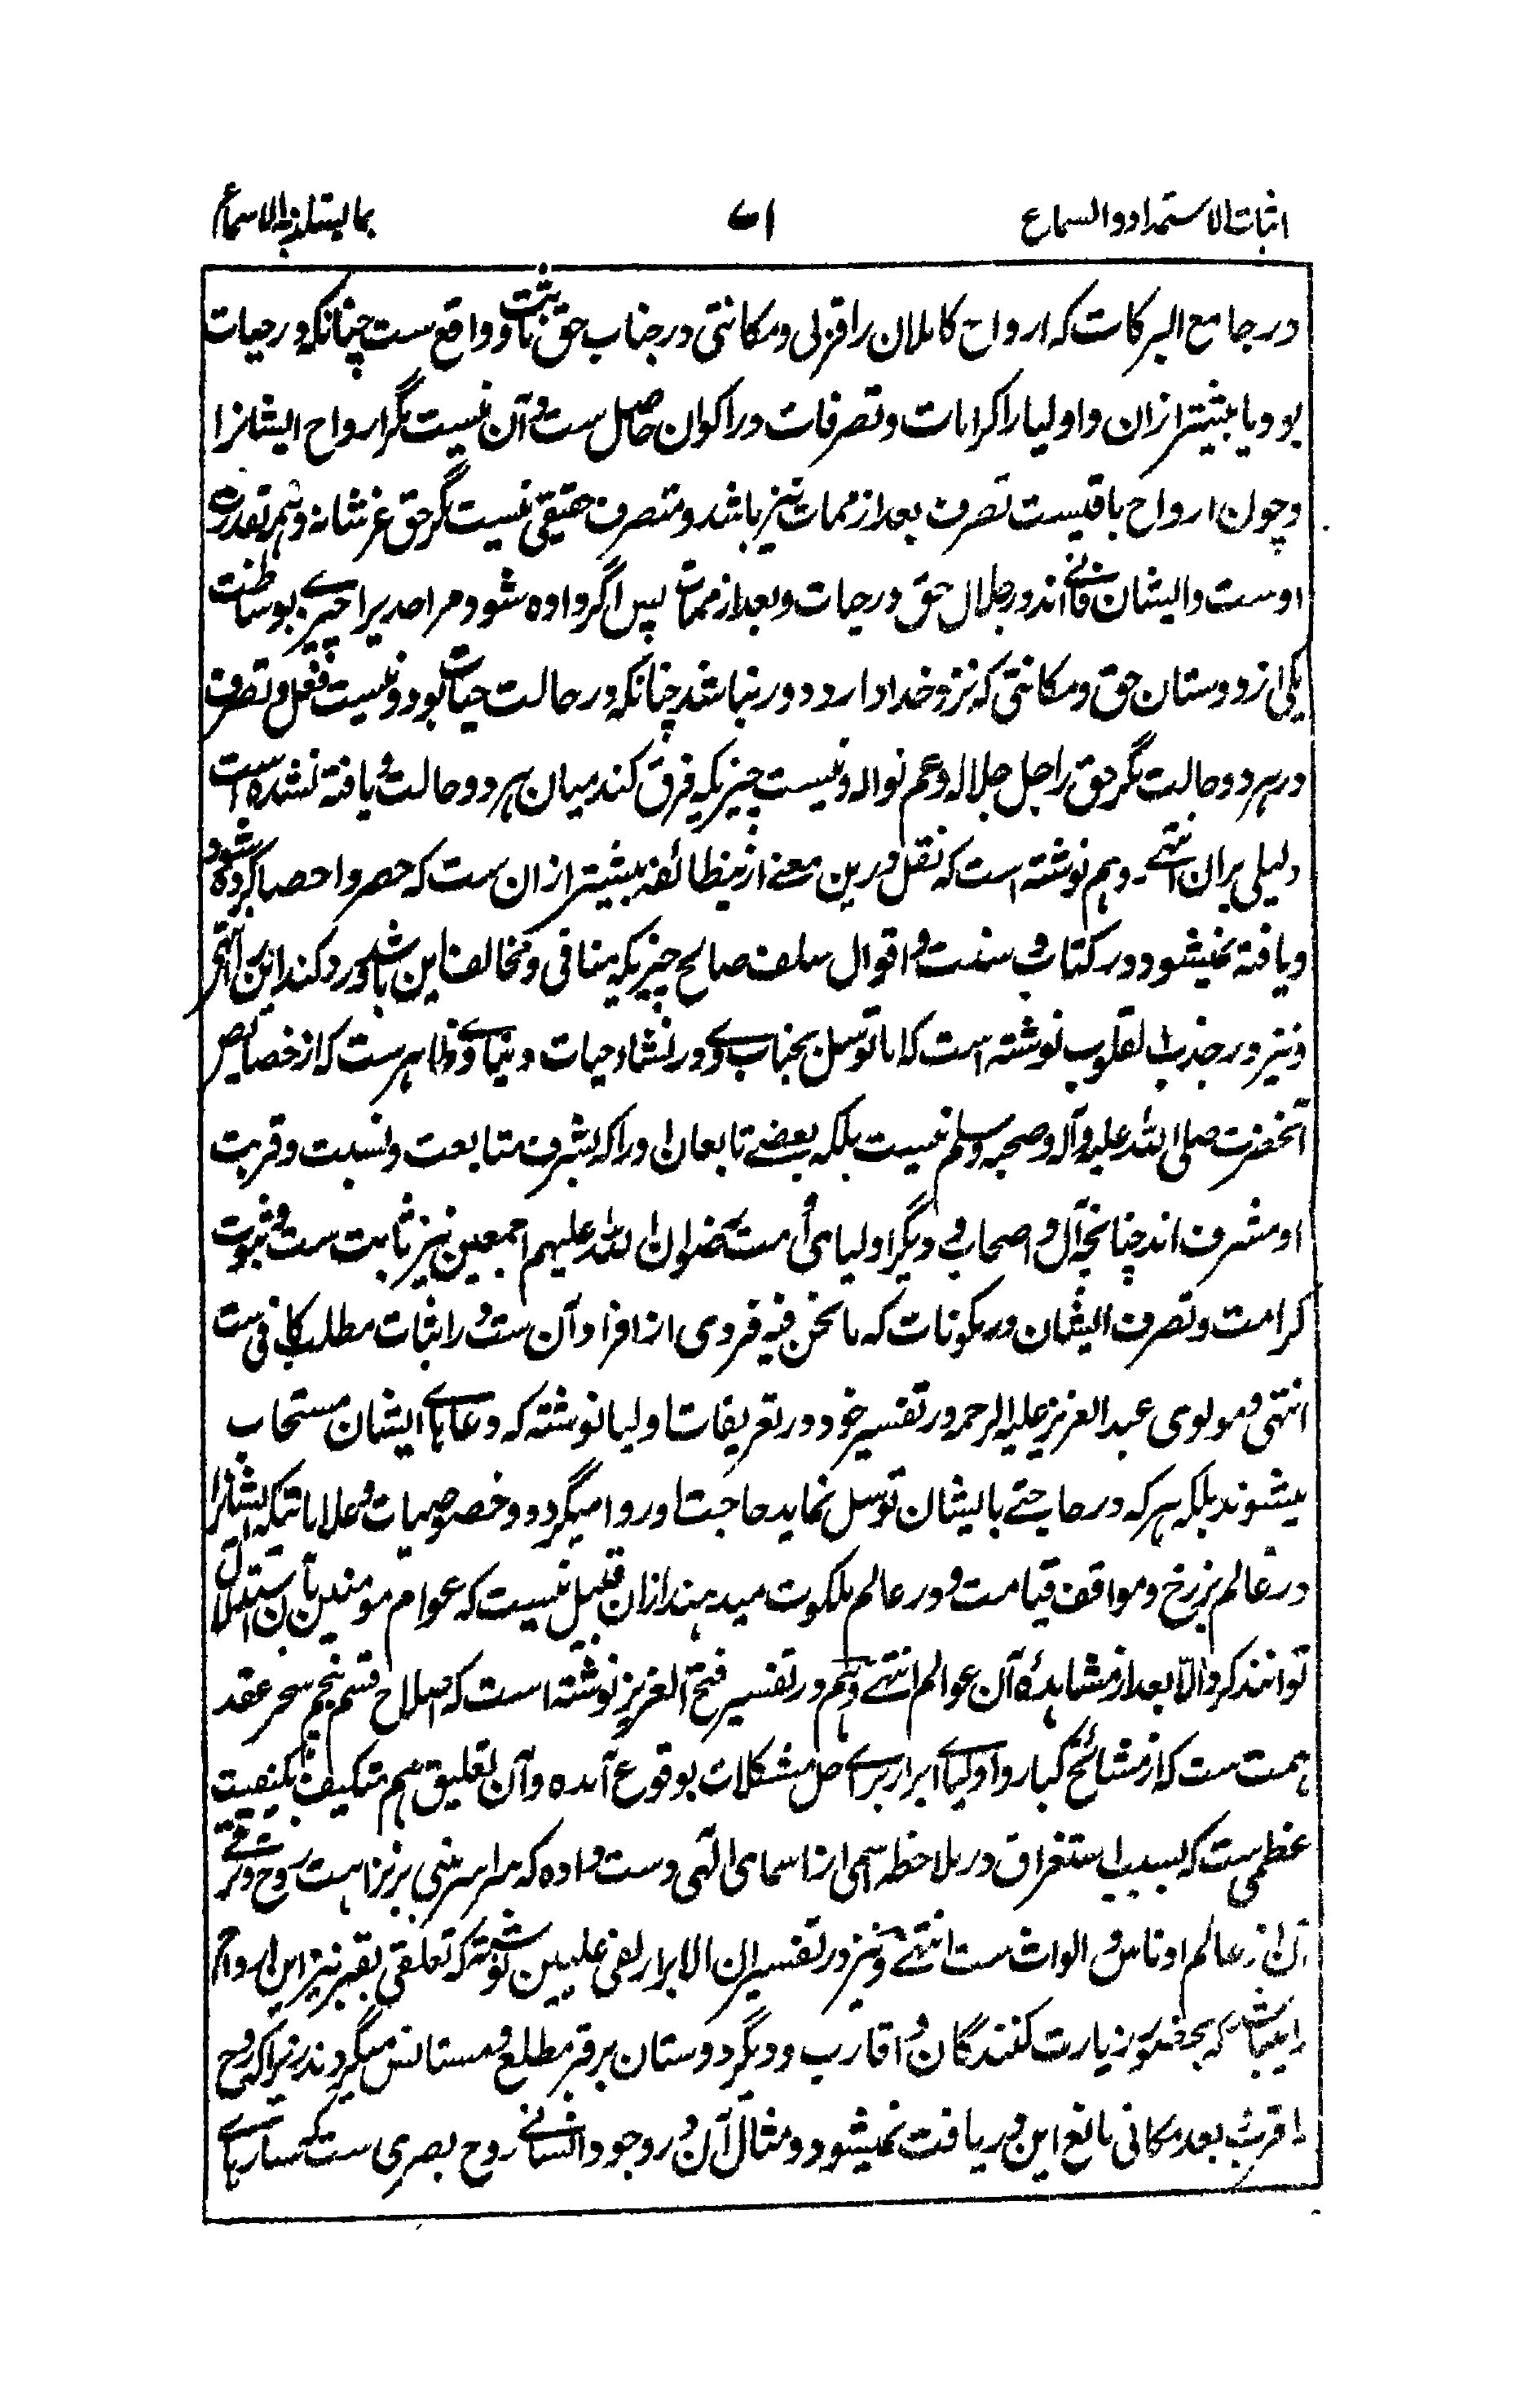 اثبات الاستمداد والسماع ۷۱ بما یستلذ به الاسماع
در جامع البرکات که ارواح کاملان را قربی و مکانتی در جناب حق ثابت و واقع ست چنانکه در حیات
بود یا بیشتر از ان و اولیا را کرامات و تصرفات در اکوان حاصل ست و آن نیست مگر ارواح ایشانرا
و چون ارواح باقیست تصرف بعد از ممات نیز باشد و متصرف حقیقی نیست مگر حق عز شانه و همه بقدرت
اوست و ایشان فانے اند در جلال حق در حیات و بعد از ممات پس اگر داده شود مر احدیرا چیزے بوساطت
یکی از دوستان حق و مکانتی که نزد خدا دارد دور نباشد چنانکه در حالت حیات بود و نیست فعل و تصرف
در هر دو حالت مگر حق را جل جلاله و عم نواله و نیست چیزیکه فرق کند میان هر دو حالت و یافته نشده است
دلیلی بران انتهے و هم نوشته است که نقل درین معنے ازینطائفه بیشتر از ان ست که حصر و احصا کرده شود
و یافته نمیشود در کتاب و سنت و اقوال سلف صالح چیزیکه منافی و مخالف این باشد و رد کند این را انتهی
و نیز در جذب القلوب نوشته است که اما توسل بجناب وے در نشاء حیات دنیاوے ظاهر ست که از خصایص
آنحضرت صلی الله علیه و آله و صحبه و سلم نیست بلکه بعضے تابعان او را که بشرف متابعت و نسبت و قربت
او مشرف اند چنانچه آل و اصحاب و دیگر اولیای أمت رضوان الله علیهم اجمعین نیز ثابت ست و ثبوت
کرامت و تصرف ایشان در مکونات که ما نحن فیه فردی از افراد آن ست در اثبات مطلب کافی ست
انتهی و مولوی عبد العزیز علیه الرحمه در تفسیر خود در تعریفات اولیا نوشته که دعاهاے ایشان مستجاب
میشوند بلکه هر که در حاجتے بایشان توسل نماید حاجت او روا میگردد و خصوصیات و علاماتیکه ایشانرا
در عالم برزخ و مواقف قیامت و در عالم ملکوت میدهند ازان قبیل نیست که عوام مومنین بآن استدلال
توانند کرد الا بعد از مشاهدهٔ آن عوالم انتهے و هم در تفسیر فتح العزیز نوشته است که اصلاح قسم پنجم سحر عقد
همت ست که از مشائخ کبار و اولیاے ابرار براے حل مشکلات بوقوع آمده و آن تعلیق هم متکیف بکیفیت
عظمی ست که بسبب استغراق در ملاحظه اسمی از اسمای الهی دست داده که سراسر مبنی بر نزاهت روح و ترقے
آن از عالم ادناس و الواث ست انتهے و نیز در تفسیر ان الابرار لفی علیین نوشته که تعلقی بقبر نیز این ارواح
را میباشد که بحضور زیارت کنندگان و اقارب و دیگر دوستان بر قبر مطلع و مستانس میگردند زیرا که روح
را قرب و بعد مکانی مانع این دریافت نمیشود و مثال آن در وجود انسانے روح بصری ست که ستارهاے